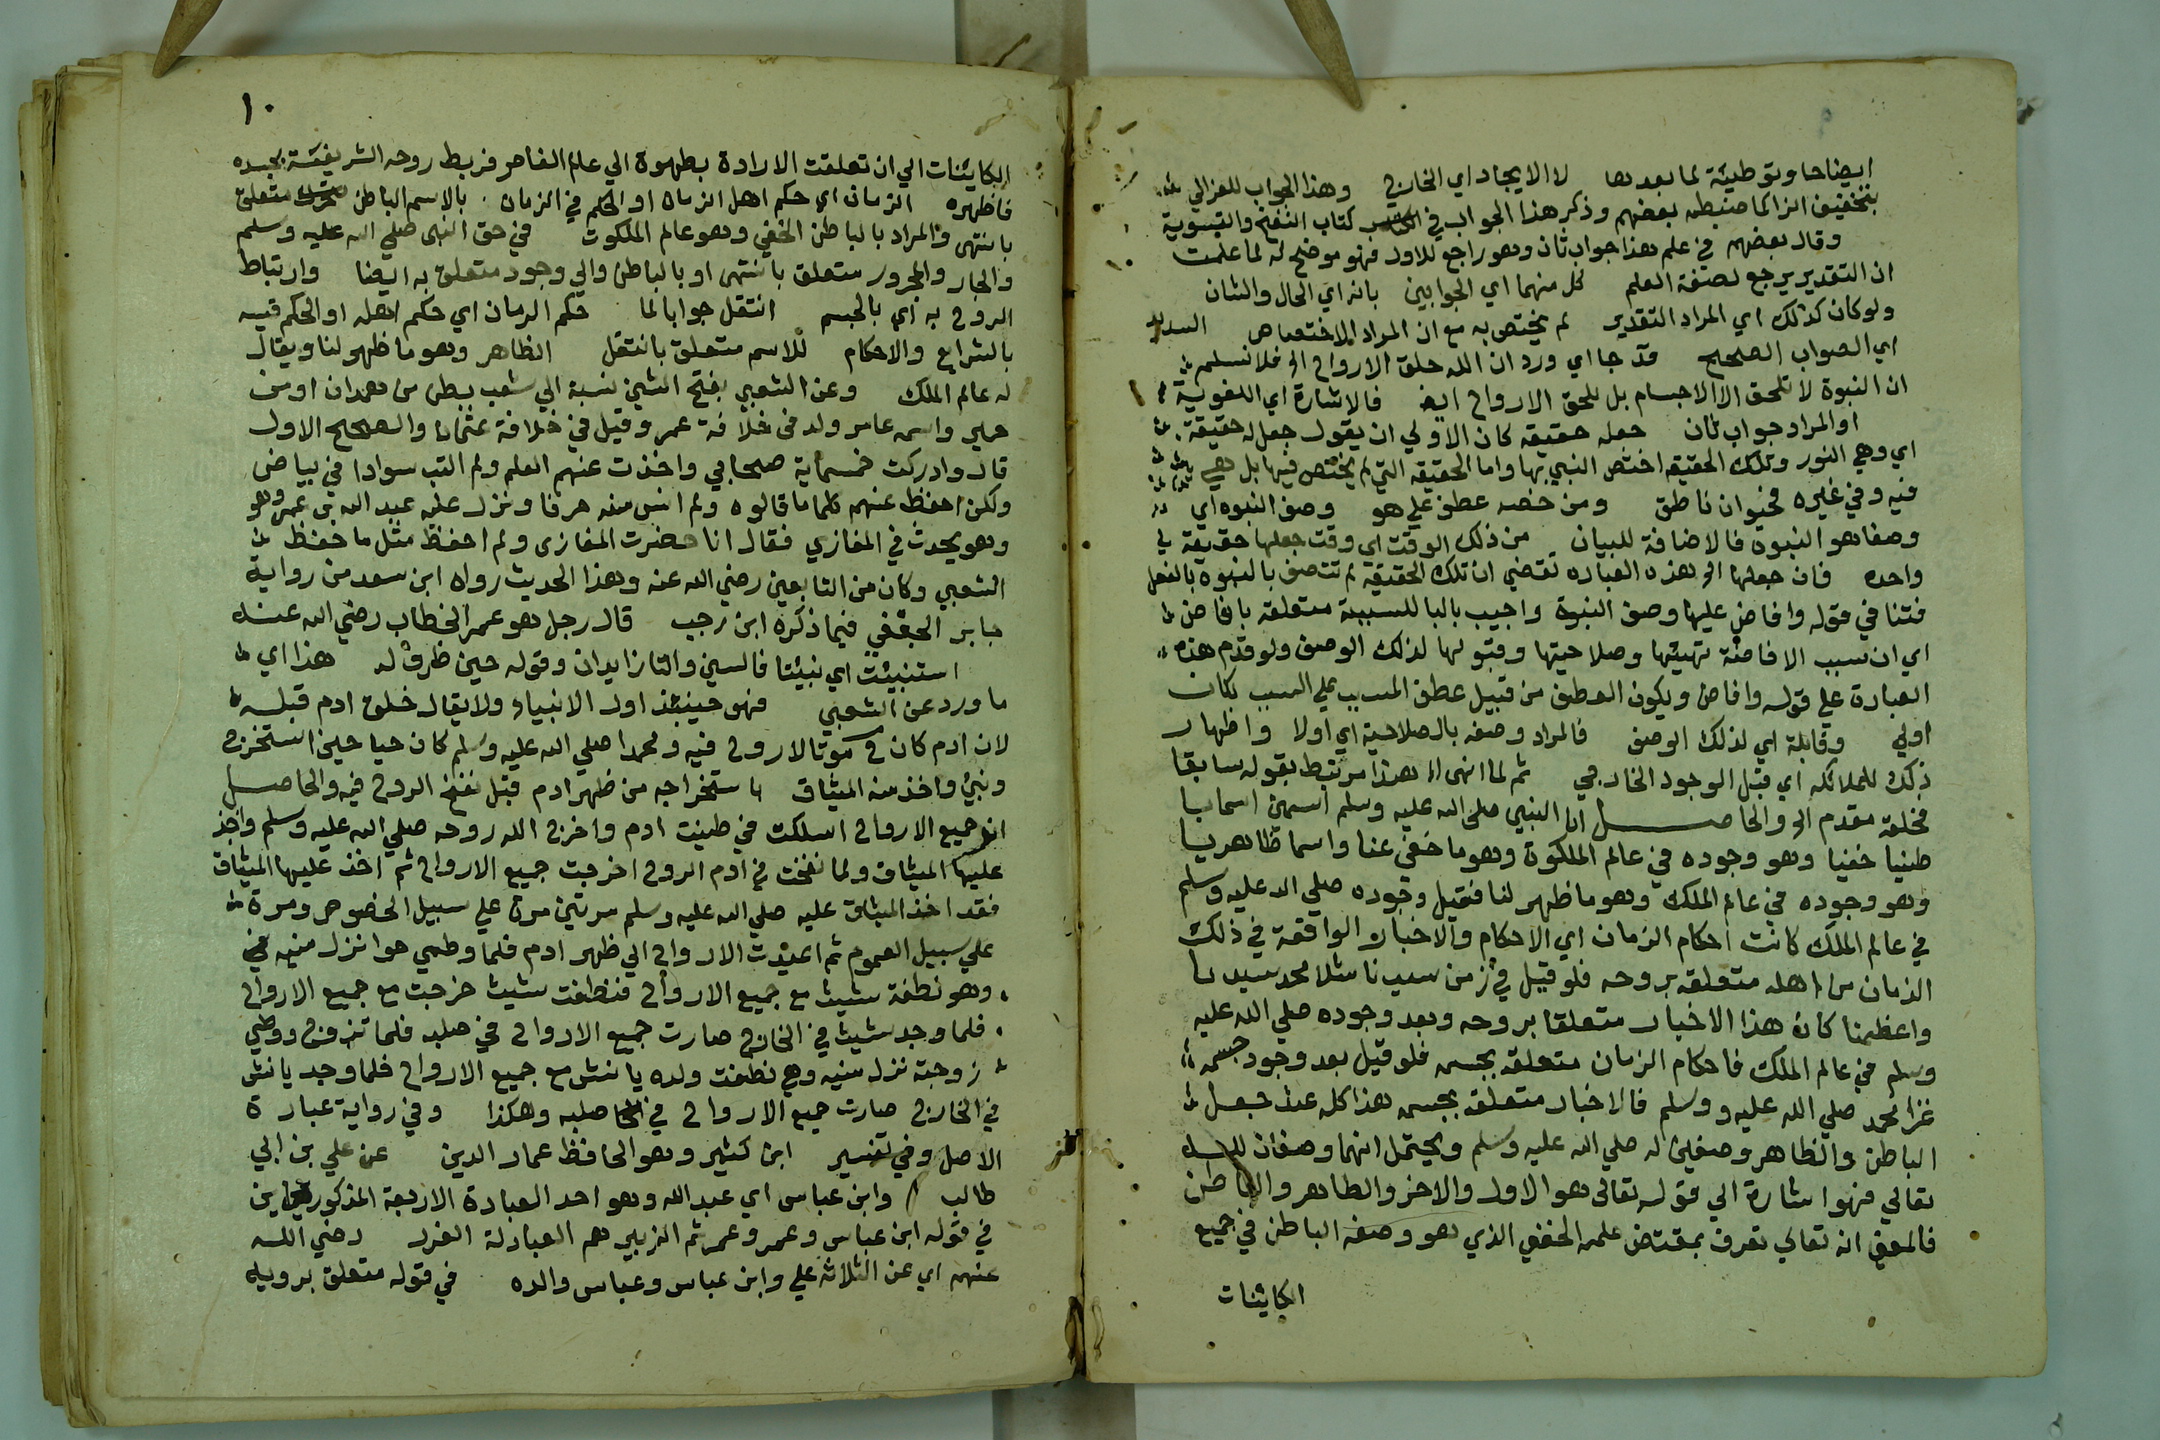 ايضاحا وتوطئة لما بعدها لا الايجاد اي الخارجي وهذا الجواب للغزالي
بتخفيف الزا كما ضبطه بعضهم وذكر هذا الجواب في كتاب النفخ والتسوية
وقال بعضهم في علم هذا جواب ثان وهو راجع للاول فهو موضح له لما علمت
ان التقدير يرجع لصفة العلم كل منهما اي الجوابين بانه اي الحال والشان
ولو كان كذلك اي المراد التقدير لم يختص به مع ان المراد الاختصاص السديد
اي الصواب الصحيح قد جا اي ورد ان الله خلق الارواح الخ فلا نسلم
ان النبوة لا تلحق الا الاجسام بل تلحق الارواح ايضا فالاشارة اي اللغوية
او المراد جواب ثان جعله حقيقه كان الاولي ان يقول جعل له حقيقة
اي وهي النور وتلك الحقيقه اختص النبي بها واما الحقيقه التي لم يختص فيها بل هي
فيه وفي غيره فحيوان ناطق ومن خصه عطف علي هو وصف النبوه اي
وصفا هو النبوة فالاضافة للبيان من ذلك الوقت اي وقت جعلها حقيقة
واحده فان جعلها الخ هذه العباره تقضي ان تلك الحقيقة لم تتصف بالنبوه بالفعل
فتنا في قوله وافاض عليها وصف النبوة واجيب بالبا للسببية متعلقة بافاض
اي ان سبب الافاضة تهيئها وصلاحيتها وقبولها لذلك الوصف ولو قدم هذه
العبارة علي قوله وافاض ويكون العطف من قبيل عطف المسبب علي السبب لكان
اولي وقابلة اي لذلك الوصف فالمراد وصفه بالصلاحية اي اولا واظهار
ذلك للملائكه اي قبل الوجود الخارجي ثم لما انهى الخ هذا مرتبط بقوله سابقا
فخلقه مقدم الخ والحاصل ان النبي صلى الله عليه وسلم اسمين اسما با
طنيا خفيا وهو وجوده في عالم الملكوة وهو ما خفي عنا واسما ظاهريا
وهو وجوده في عالم الملك وهو ما ظهر لنا فقبل وجوده صلي الله عليه وسلم
في عالم الملك كانت احكام الزمان اي الاحكام والاخبار الواقعة في ذلك
الزمان من اهله متعلقه بروحه فلو قيل في زمن سيدنا مثلا محمد سيدنا
واعظمنا كان هذا الاخبار متعلقا بروحه وبعد وجوده صلي الله عليه
وسلم في عالم الملك فاحكام الزمان متعلقه بجسمه فلو قيل بعد وجود جسمه
غزا محمد صلي الله عليه ووسلم فالاخبار متعلق بجسمه هذا كله عند جعل
الباطن والظاهر وصفين له صلي الله عليه وسلم ويحتمل انهما وصفان لله
تعالي فهو اشارة الي قوله تعالى هو الاول والاخر والظاهر والباطن
فالمعني انه تعالي تصرف بمقتضى علمه الخفي الذي هو وصفه الباطن في جميع
الكاينات
١٠
الكاينات الي ان تعلقت الارادة بظهوره الي عالم الظاهر فربط روحه الشريفة بجسده
فاظهره الزمان اي حكم اهل الزمان او الحكم في الزمان بالاسم الباطن متعلق
بانتهى والمراد بالباطن الخفي وهو عالم الملكوت في حق النبي صلي الله عليه وسلم
والجار والمجرور متعلق بانتهى او بالباطن والي وجود متعلق به ايضا وارتباط
الروح به اي بالجسم انتقل جواب لما حكم الزمان اي حكم اهله او الحكم فيه
بالشرايع والاحكام للاسم متعلق بانتقل الظاهر وهو ما ظهر لنا ويقال
له عالم الملك وعن الشعبي بفتح الشين نسبة الي شعب بطن من همدان او من
حمير واسمه عامر ولد في خلافة عمر وقيل في خلافة عثمان والصحيح الاول
قال وادركت خمسماية صحابي واخذت عنهم العلم ولم اكتب سوادا في بياض
ولكن احفظ عنهم كلما ما قالوه ولم انس منه حرفا ونزل عليه عبد الله بن عمر وهو
وهو يحدث في المغازي فقال انا حضرت المغازى ولم احفظ مثل ما حفظ
الشعبي وكان من التابعين رضي الله عنه وهذا الحديث رواه ابن سعد من رواية
جابر الجعفي فيما ذكره ابن رجب قال رجل هو عمر الخطاب رضي الله عنه
استنبئت اي نبيئا فالسين والتا زايدان وقوله حين ظرف له هذا اي
ما ورد عن الشعبي فهو حينئذ اول الانبياء ولا يقال خلق ادم قبله
لان ادم كان موتا لا روح فيه ومحمدا صلي الله عليه وسلم كان حيا حين استخرج
ونبي واخذ منه الميثاق باستخراجه من ظهر ادم قبل نفخ الروح فيه والحاصل
ان جميع الارواح اسلكت في طينت ادم واخرج الله روحه صلي الله عليه وسلم واخذ
عليها الميثاق ولما نفخت في ادم الروح اخرجت جميع الارواح ثم اخذ عليها الميثاق
فقد اخذ الميثاق عليه صلي الله عليه وسلم مرتين مرة علي سبيل الخصوص ومرة
علي سبيل العموم ثم اعيدت الارواح الي ظهر ادم فلما وطي حوا نزل منيه
وهو نطفة شيث مع جميع الارواح فنطفت شيث خرجت مع جميع الارواح
فلما وجد شيث في الخارج صارت جميع الارواح في صلبه فلما تزوج ووطي
زوجته نزل منيه وهي نطفت ولده يانش مع جميع الارواح فلما وجد يانش
في الخارج صارت جميع الارواح في صلبه وهكذا وفي رواية عبارة
الاصل وفي تفسير ابن كثير وهو الحافظ عماد الدين عن علي بن ابي
طالب وابن عباس اي عبد الله وهو احد العبادة الاربعة المذكورين
في قوله ابن عباس وعمر وعمر ثم الزبير هم العبادلة الغرر رضي الله
عنهم اي عن الثلاثه علي وابن عباس وعباس والده في قوله متعلق برويه